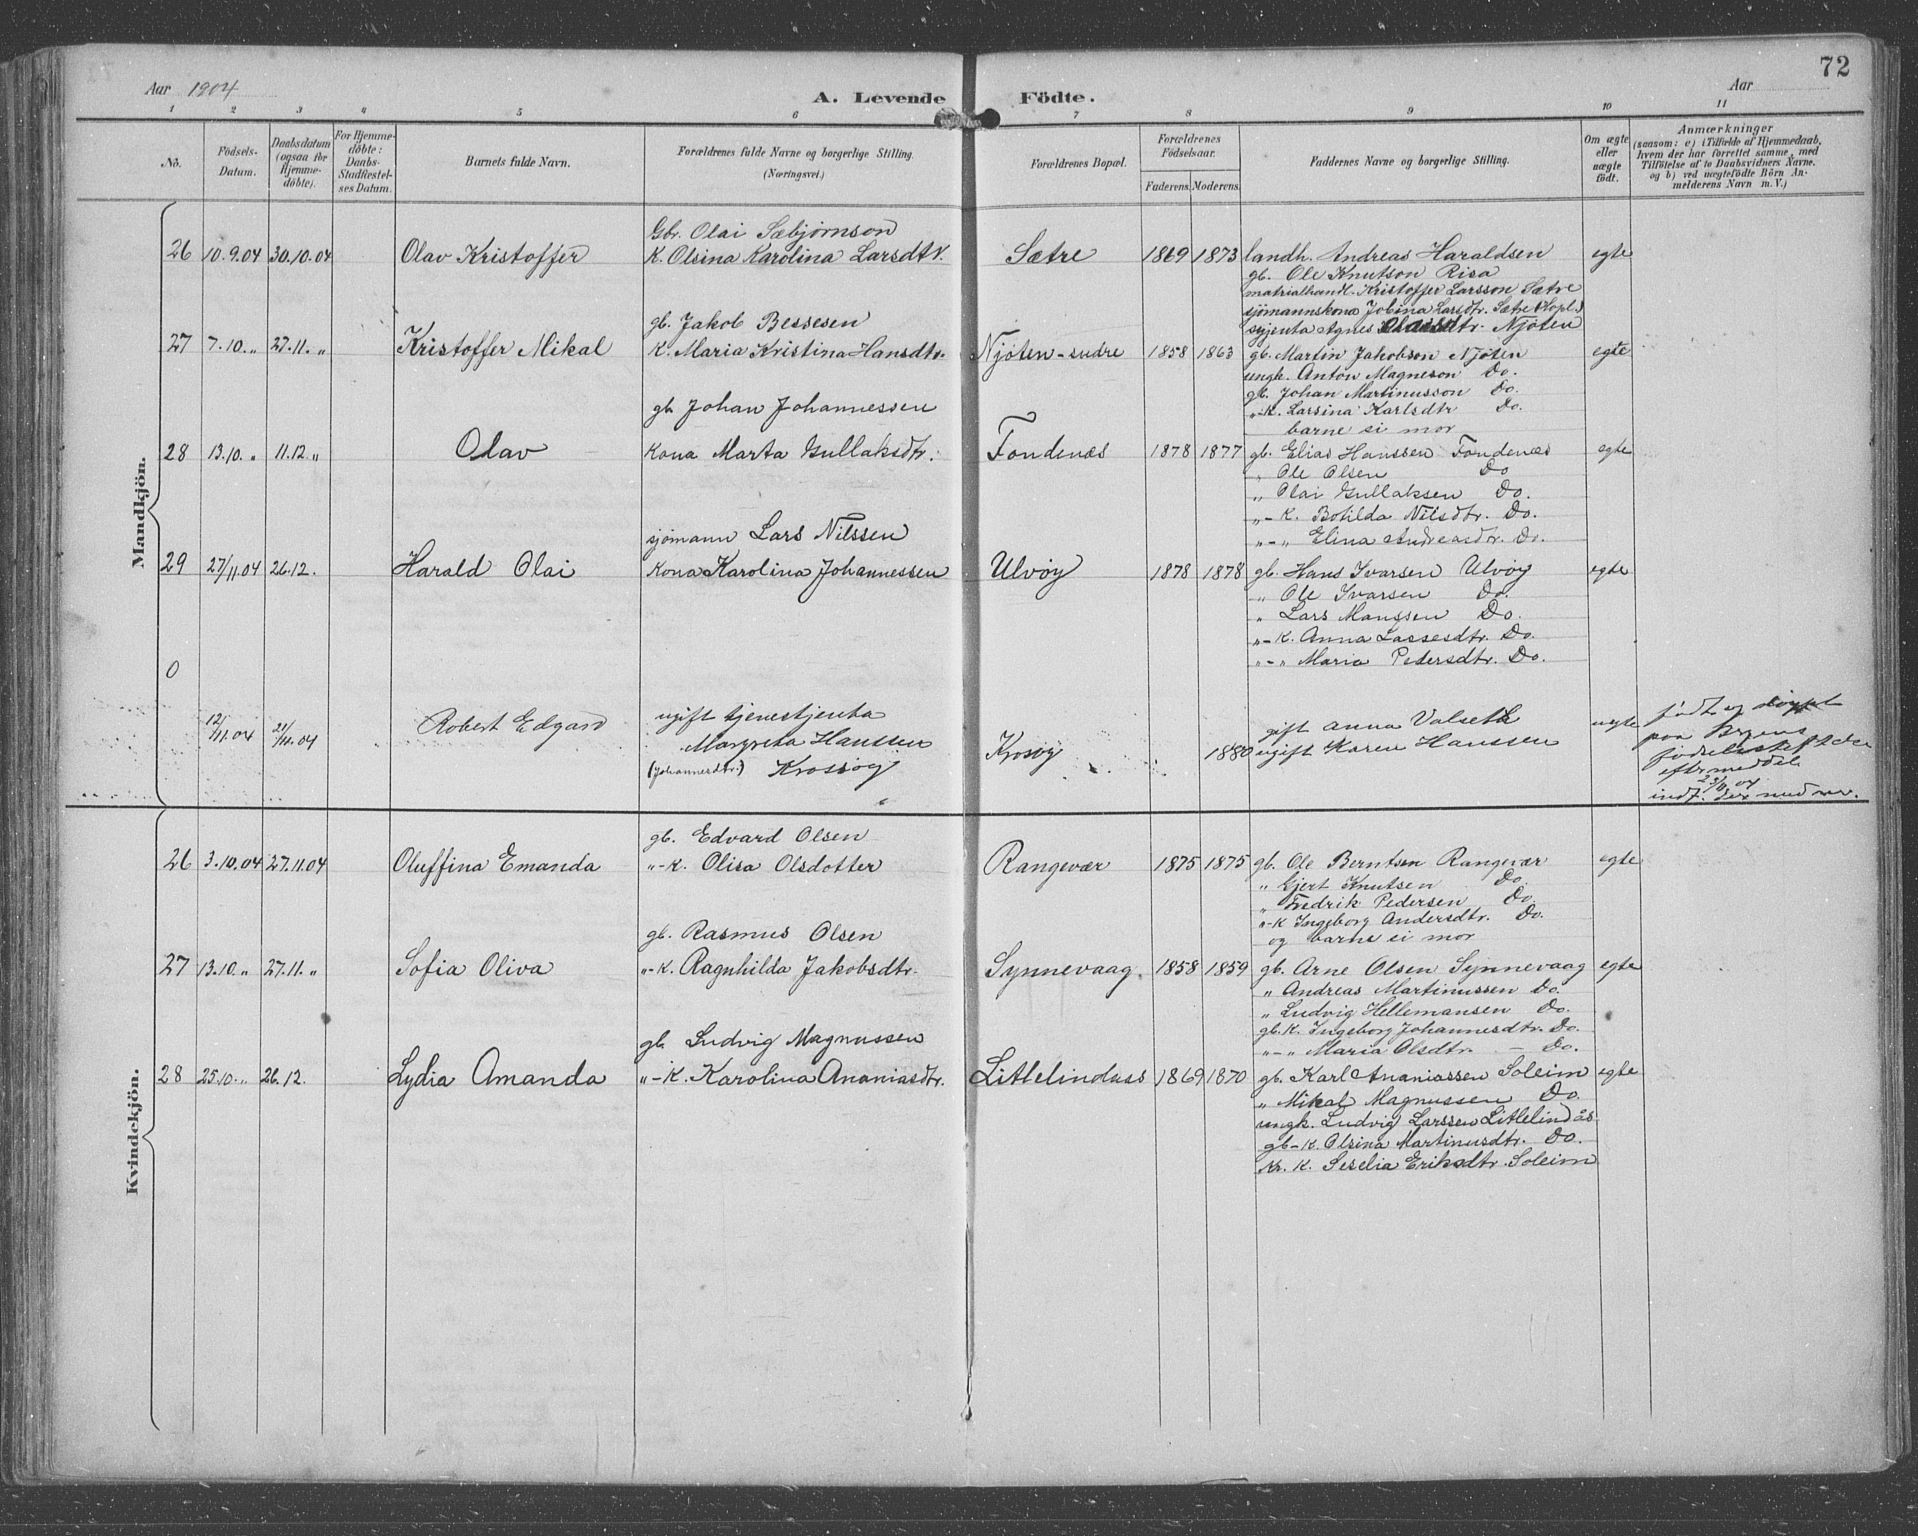 72
Aar 1904
A. Levende Födte.
Aar
1 2 3 4 5 6 7 8 9 10 11
Nö.
Födsels-Datum.
Daabsdatum (ogsaa for Hjemmedöbte).
For Hjemmedöbte: Daabs-Stadfæstelses Datum.
Barnets fulde Navn.
Forældrenes fulde Navne og borgerlige Stilling. (Næringsvei.)
Forældrenes Bopæl.
Forældrenes Födselsaar.
Faderens. Moderens.
Faddernes Navne og borgerlige Stilling.
Om ægte eller uægte födt.
Anmærkninger
(saasom: a) i Tilfælde af Hjemmedaab, hvem der har forrettet samme, med Tilföielse af to Daabsvidners Navne, og b) ved uægtefödte Börn Anmelderens Navn m. V.)
Mandkjön.
Gbr. Olai Sæbjørnson
26 10.9.04 30.10.04 Olav Kristoffer K. Olsina Karolina Larsdtr. Sætre 1869 1873 landh. Andreas Haraldsen egte
gb. Ole Knutson Risa
matrialhandl. Kristoffer Larsson Sætre
sjömannskona Jobina Larsdtr. Sætre (Hopl.)
gb. Jakob Bessesen
syjenta Agnes Olaisdtr. Njøten
27 7.10. „ 27.11. „ Kristoffer Mikal K. Maria Kristina Hansdtr. Njøten-sudre 1858 1863 gb. Martin Jakobson Njøten egte
ungk. Anton Magneson Do.
gb. Johan Martinusson Do.
gb. Johan Johannessen
„-K. Larsina Karlsdtr Do.
barne si mor
28 13.10. „ 11.12 „ Olav Kona Marta Gullaksdtr. Fondenæs 1878 1877 gb. Elias Hanssen Fondenæs egte
„ Ole Olsen Do
„ Olai Gullaksen Do.
„-K. Botilda Nilsdtr. Do.
sjømann Lars Nilssen
„-„ Elina Andreasdtr. Do.
29 27/11.04 26.12. Harald Olai Kona Karolina Johannessen Ulvøy 1878 1878 gb. Hans Ivarsen Ulvöy egte
„ Ole Ivarsen Do.
„ Lars Monssen Do.
„-K. Anna Lassesdtr. Do.
„-„ Maria Pedersdtr. Do.
0
12/11.04 21/11.04 Robert Edgard ugift tjenestjenta
Margreta Hanssen
(Johannesdtr.) Krossøy
Krosøy 1880
gift Anna Valseth
ugift Karen Hanssen
uegte
født og döypt
paa Bergens
fødselsstiftelse
efter meddel.
23/11 04
indf. der med nr.
Kvindekjön.
gb. Edvard Olsen
26 3.10.04 27.11.04 Oluffina Emanda „-K. Olisa Olsdotter Rangevær 1875 1875 gb. Ole Berntsen Rangevær egte
„ Gjert Knutsen Do.
„ Fredrik Pedersen Do.
„-K Ingeborg Andersdtr. Do.
gb. Rasmus Olsen
og barne si mor
27 13.10. „ 27.11. „ Sofia Oliva „-K. Ragnhilda Jakobsdtr. Synnevaag. 1858 1859 gb. Arne Olsen Synnevaag egte
„ Andreas Martinussen Do.
„ Ludvig Hellemansen Do.
gb.K. Ingeborg Johannesdtr. Do.
gb. Ludvig Magnussen
„-„ Maria Olsdtr. – Do.
28 25.10. „ 26.12. Lydia Amanda „-K. Karolina Ananiasdtr. Littlelindaas 1869 1870 gb. Karl Ananiassen Soleim egte
„ Mikal Magnussen Do.
ungk. Ludvig Larssen Littlelindås
gb-K. Olsina Martinusdtr. Do.
K. Seselia Eriksdtr. Soleim